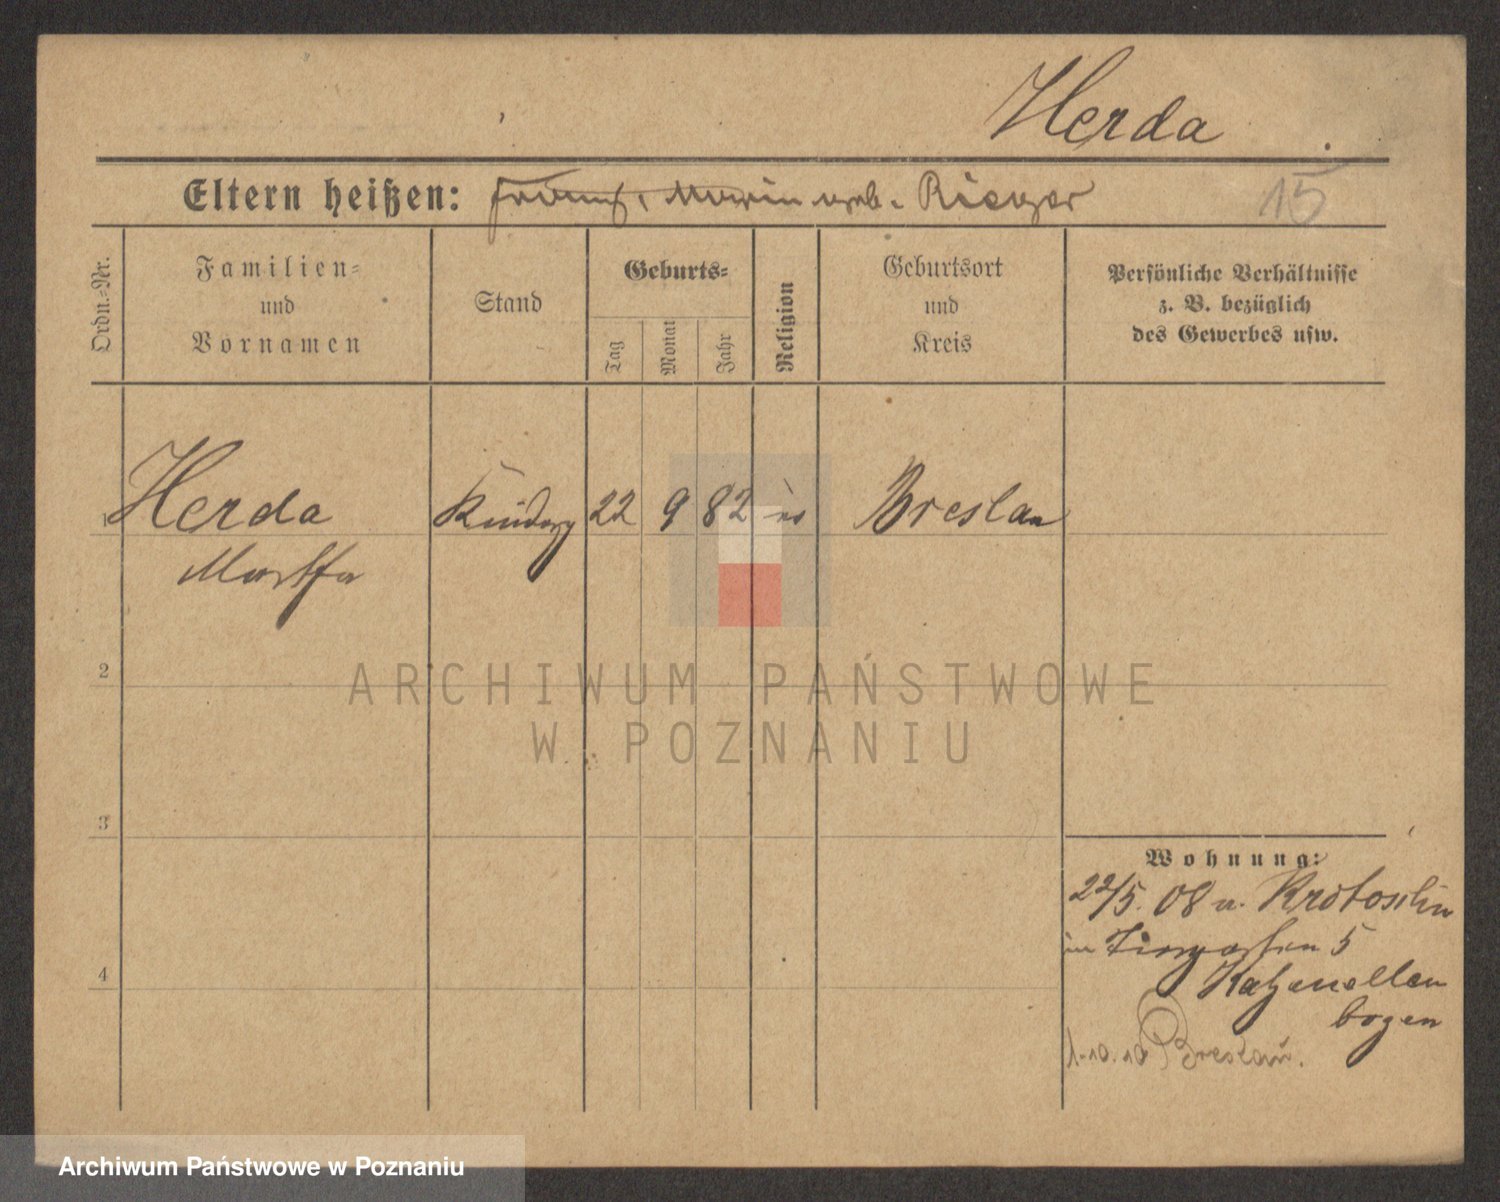 Herda
Eltern heißen: Franz, Maria geb. Rieger
15
Ordn.-Nr.
Familien-
und
Vornamen
Stand
Geburts-
Tag
Monat
Jahr
Religion
Geburtsort
und
Kreis
Persönliche Verhältnisse
z. B. bezüglich
des Gewerbes usw.
Herda
22 9 82
Breslau
Martha
2
3
4
Wohnung:
22/5. 08 v. Krotoschin
5
Katzenellen
bogen
1.10.10 Breslau.
ARCHIWUM PAŃSTWOWE
W POZNANIU
Archiwum Państwowe w Poznaniu